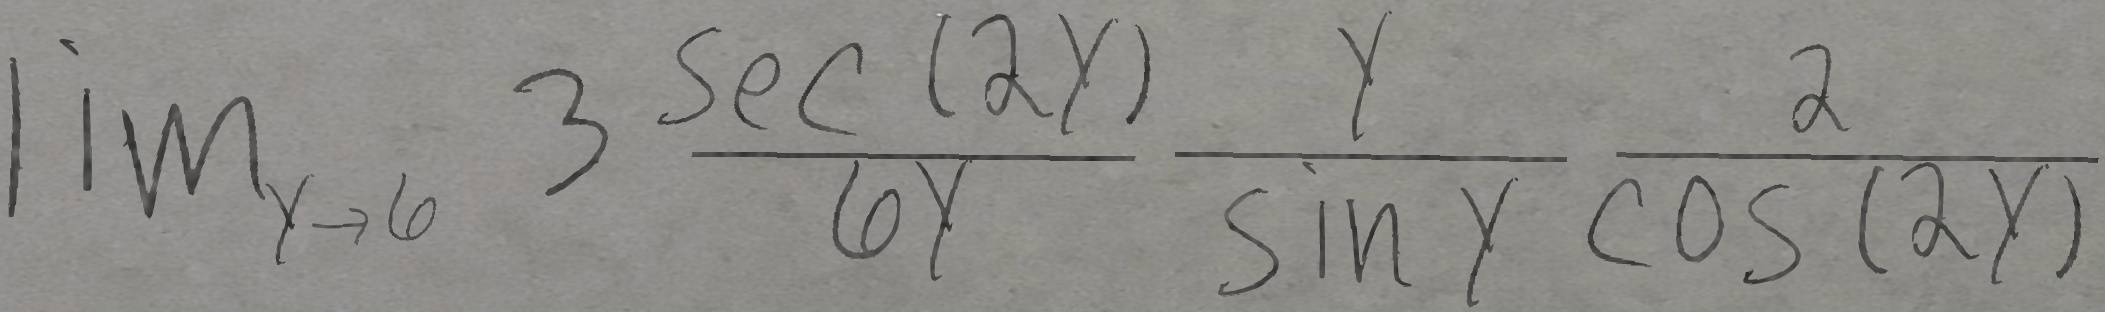 \lim_{y \to 6} 3 \frac{\sec(2y)}{6y} \frac{y}{\sin y} \frac{2}{\cos(2y)}